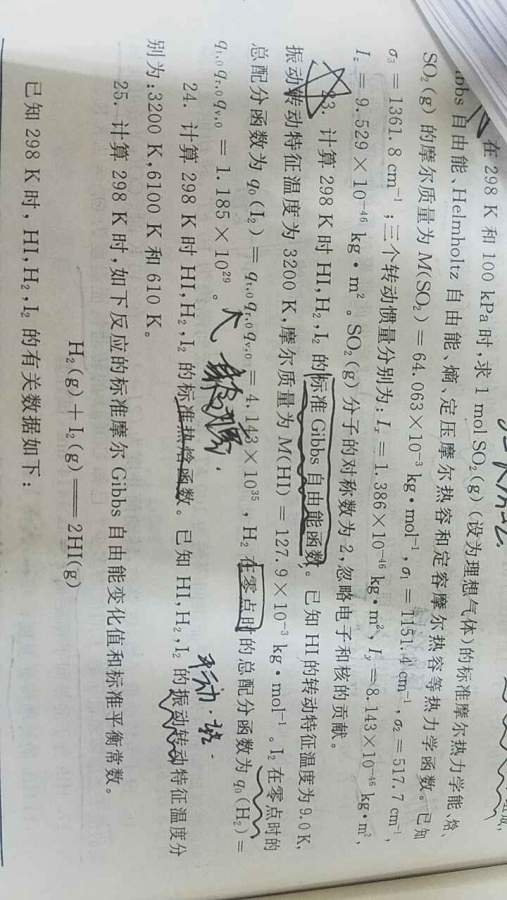 在298 K和100 kPa时,求1 mol SO₂(g)(设为理想气体)的标准摩尔热力学能、焓、
Gibbs自由能、Helmholtz自由能、熵、定压摩尔热容和定容摩尔热容等热力学函数。已知
SO₂(g)的摩尔质量为M(SO₂)=64.063×10⁻³ kg·mol⁻¹,σ₁=1151.4 cm⁻¹,σ₂=517.7 cm⁻¹,
σ₃=1361.8 cm⁻¹;三个转动惯量分别为:Iₓ=1.386×10⁻⁴⁶ kg·m²、I_y=8.143×10⁻⁴⁶ kg·m²、
I_z=9.529×10⁻⁴⁶ kg·m²。SO₂(g)分子的对称数为2,忽略电子和核的贡献。
23. 计算298 K时HI,H₂,I₂的标准Gibbs自由能函数。已知HI的转动特征温度为9.0 K,
振动转动特征温度为3200 K,摩尔质量为M(HI)=127.9×10⁻³ kg·mol⁻¹。I₂在零点时的
总配分函数为q₀(I₂)=q_{t,0}q_{r,0}q_{v,0}=4.143×10³⁵,H₂在零点时的总配分函数为q₀(H₂)=
q_{t,0}q_{r,0}q_{v,0}=1.185×10²⁹。
24. 计算298 K时HI,H₂,I₂的标准热焓函数。已知HI,H₂,I₂的振动转动特征温度分
别为:3200 K,6100 K和610 K。
25. 计算298 K时,如下反应的标准摩尔Gibbs自由能变化值和标准平衡常数。
H₂(g)+I₂(g)══2HI(g)
已知298 K时,HI,H₂,I₂的有关数据如下: